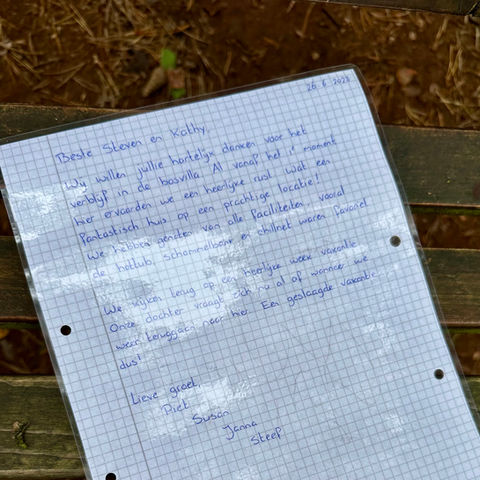 26-6-2023
Beste Steven en Kathy,
Wij willen jullie hartelijk danken voor het
verblijf in de bosvilla. Al vanaf het 1e moment
hier ervaarden we een heerlijke rust. Wat een
fantastisch huis op een prachtige locatie!
We hebben genoten van alle faciliteiten, vooral
de hottub, schommelbank en chillnet waren favoriet.
We kijken terug op een heerlijke week vakantie.
Onze dochter vraagt zich nu al af wanneer we
weer teruggaan naar hier. Een geslaagde vakantie
dus!
Lieve groet,
Piet
Susan
Janna
Steef